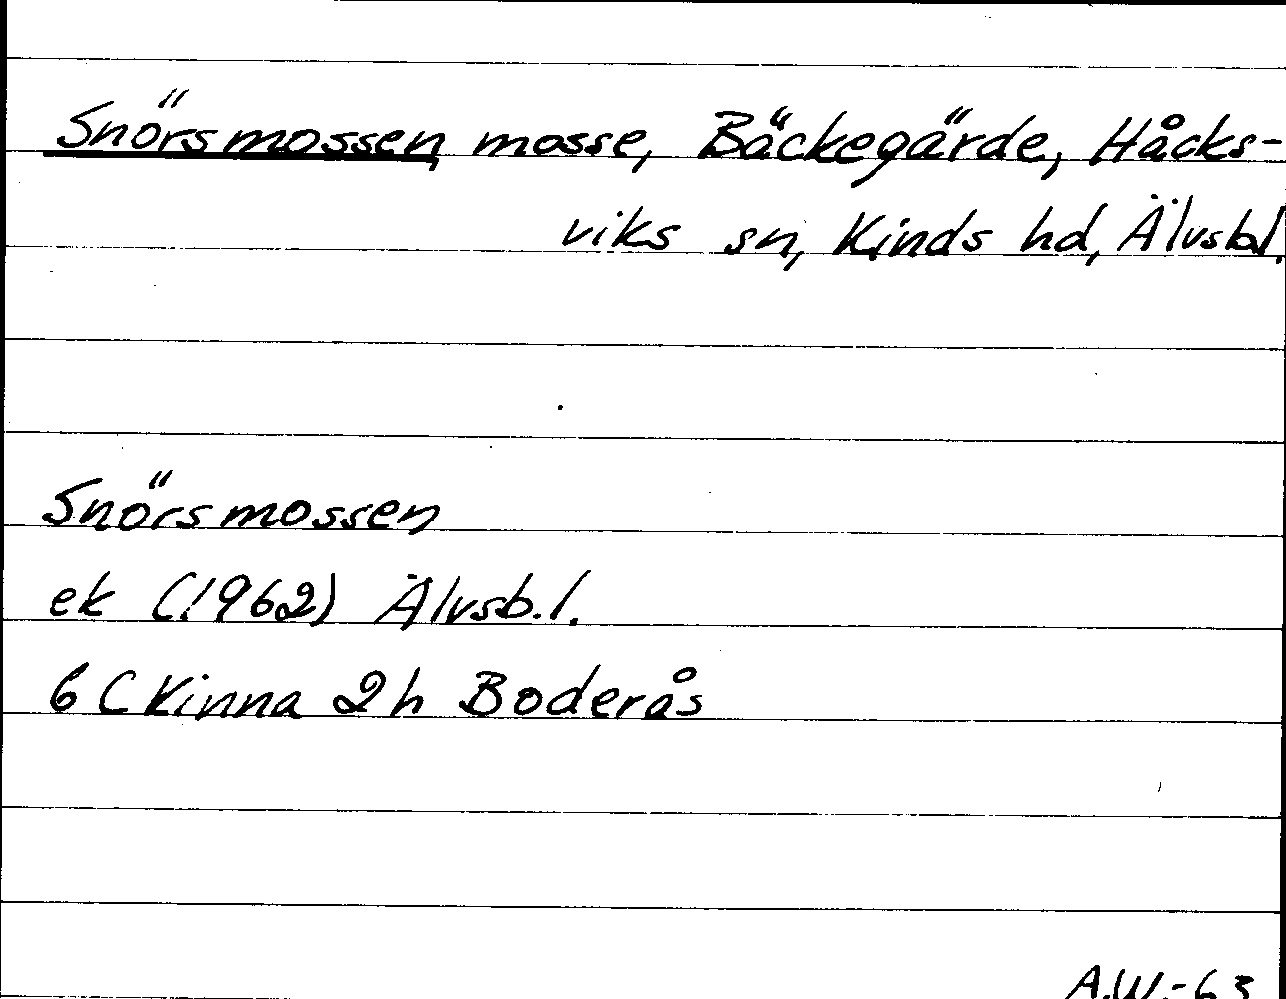 Snörsmossen, mosse, Bäckegärde, Håcks-
viks sn, Kinds hd, Älvsb.l.
Snörsmossen
ek (1962) Älvsb.l.
6 C Kinna 2h Boderås
A.W.-63